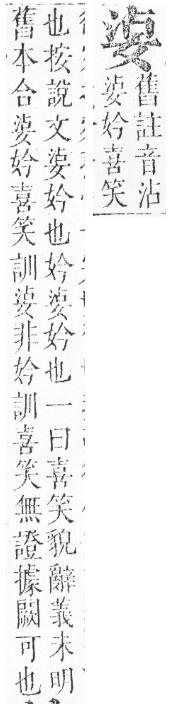 舊註音沾
妗喜笑
也按說文妗也妗妗也一曰喜笑貌辭義未明
舊本合妗喜笑訓非妗訓喜笑無證據闕可也